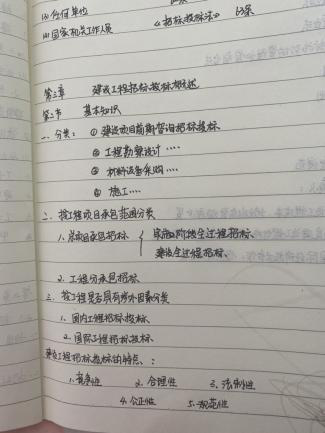 (3) 任何单位
(4) 国家机关工作人员 《招标投标法》 63条
第三章 建设工程招标投标概述
第一节 基本知识
一、分类: ① 建设项目前期咨询招标投标
② 工程勘察设计 ····
③ 材料设备采购 ····
④ 施工 ····
二、按工程项目承包范围分类
1. 总项目承包招标 { 实施阶段全过程招标
建设全过程招标
2. 工程分承包招标
三、按工程是否具有涉外因素分类
1. 国内工程招标投标
2. 国际工程招标投标
建设工程招标投标的特点:
1. 竞争性 2. 合理性 3. 法制性
4. 公正性 5. 规范性